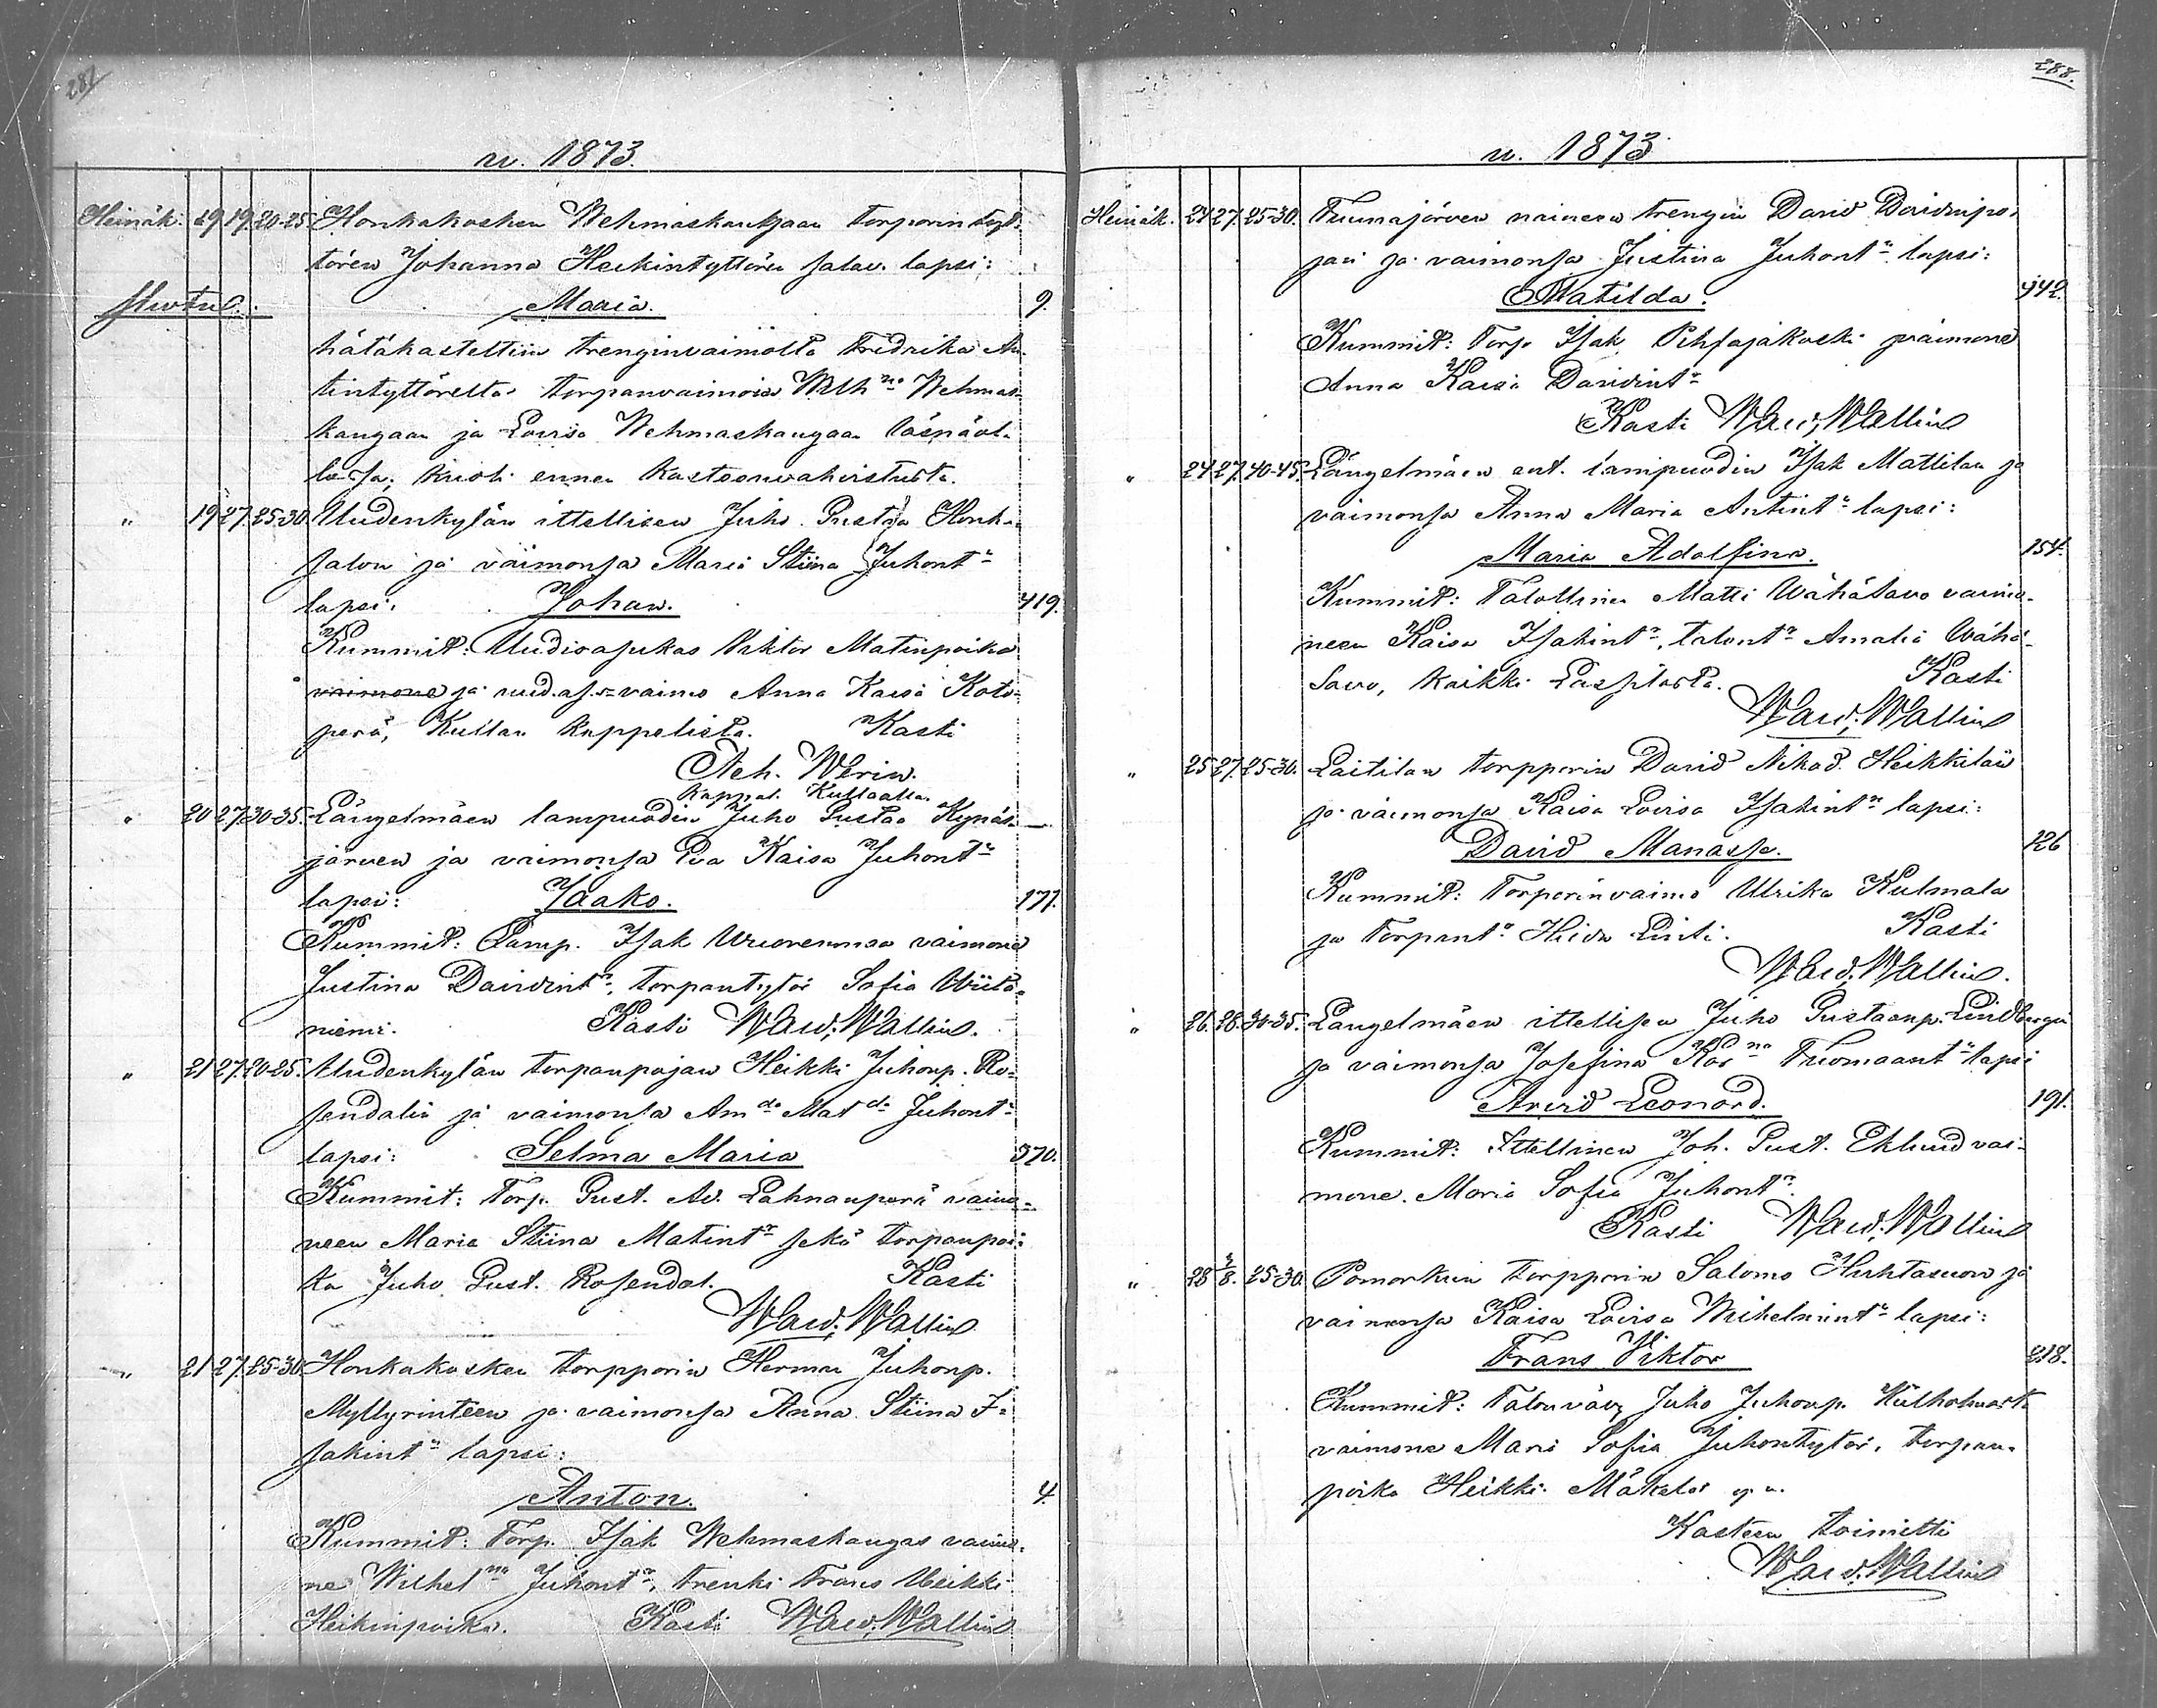 287
v. 1873.
Heinäk. 19 19 20-25 Honkakosken Wehmaskankaan torporin tyt-
tären Johanna Heikintyttären salav. lapsi:
Maria. 9.
hätäkastettiin trenginvaimolta Fredrika An-
tintyttäreltä torpanvaimoin Wilh:na Wehmas-
kangaan ja Lovisa Wehmaskangaan läsnäol-
lessa, kuoli ennen kasteenvahvistusta.
" 19 27. 25-30 Uudenkylän ittellisen Juho Gustaa Honka-
salon ja vaimonsa Maria Stiina Juhont:r
lapsi: Johan. 419.
Kummit: Uudisasukas Viktor Matinpoika
vaimone ja uud.as. vaimo Anna Kaisa Koto-
perä, Kullan kappelista. Kasti
Ah. Werin.
Kappal. Kullaalla.
" 20 27. 30-35. Längelmäen lampuodin Juho Gustaa Kynäs-
järven ja vaimonsa Eva Kaisa Juhont:r
lapsi: Jaako. 177.
Kummit: Lamp. Isak Wuorenmaa vaimone
Justina Davidint:r, torpantytär Sofia Wiitä-
niemi. Kasti W Aw. Wallin.
" 21 27. 20-25. Uudenkylän torpanpojan Heikki Juhonp. Ro-
sendalin ja vaimonsa Am:da Mat:da Juhont:r
lapsi: Selma Maria 370.
Kummit: Torp. Gust. Ad. Lahnanperä vaimo-
neen Maria Stiina Matint:r sekä torpanpoi-
ka Juho Gust. Rosendal. Kasti
W Aw. Wallin
" 21 27. 25-30. Honkakosken torpporin Herman Juhonp.
Myllyrinteen ja vaimonsa Anna Stiina I-
sakint:r lapsi:
Anton. 4.
Kummit: Torp. Isak Wehmaskangas vaimo-
ne Wilhel:na Juhont:r, trenki Frans Heikki
Heikinpoika. Kasti W Aw. Wallin
288.
v. 1873
Heinäk. 24 27. 25-30. Tuunajärven naineen trengin David Davidinpo-
jan ja vaimonsa Justina Juhont:r lapsi:
Matilda. 142.
Kummit: Torp. Isak Pihlajakoski vaimone
Anna Kaisa Davidint:r
Kasti W Aw. Wallin
" 24 27. 40-45. Längelmäen ent. lampuodin Isak Mattilan ja
vaimonsa Anna Maria Antint:r lapsi:
Maria Adolfina. 154.
Kummit: Talollinen Matti Wähäsavo vaimo-
neen Kaisa Isakint:r, talont:r Amalia Wähä-
Savo, kaikki Kasti
W Aw. Wallin
" 25 27. 25-30. Laitilan torpporin David Nikod. Heikkilän
ja vaimonsa Kaisa Lovisa Isakint:r lapsi:
David Manasse. 126
Kummit: Torporinvaimo Ulrika Kulmala
ja Torpant:r Hilda Kasti
W Aw. Wallin.
" 26. 28. 30-35. Längelmäen ittellisen Juho Gustaanp. Lindbergin
ja vaimonsa Josefina Kar:na Tuomaant:r lapsi
Arvid Leonard. 191.
Kummit: Ittellinen Joh. Gust. Eklund vai-
mone. Maria Sofia Juhont:r.
Kasti W Aw. Wallin
" 28 3/8. 25-30. Pomarkun torpporin Salomo Huhtasuon ja
vaimonsa Kaisa Lovisa Wilhelmint:r lapsi:
Frans Viktor 218.
Kummit: Talonvävy Juho Juhonp.
vaimone Maria Sofia Juhontytär, torpan-
poika Heikki Mäkelä
Kasteen toimitti
W Aw. Wallin